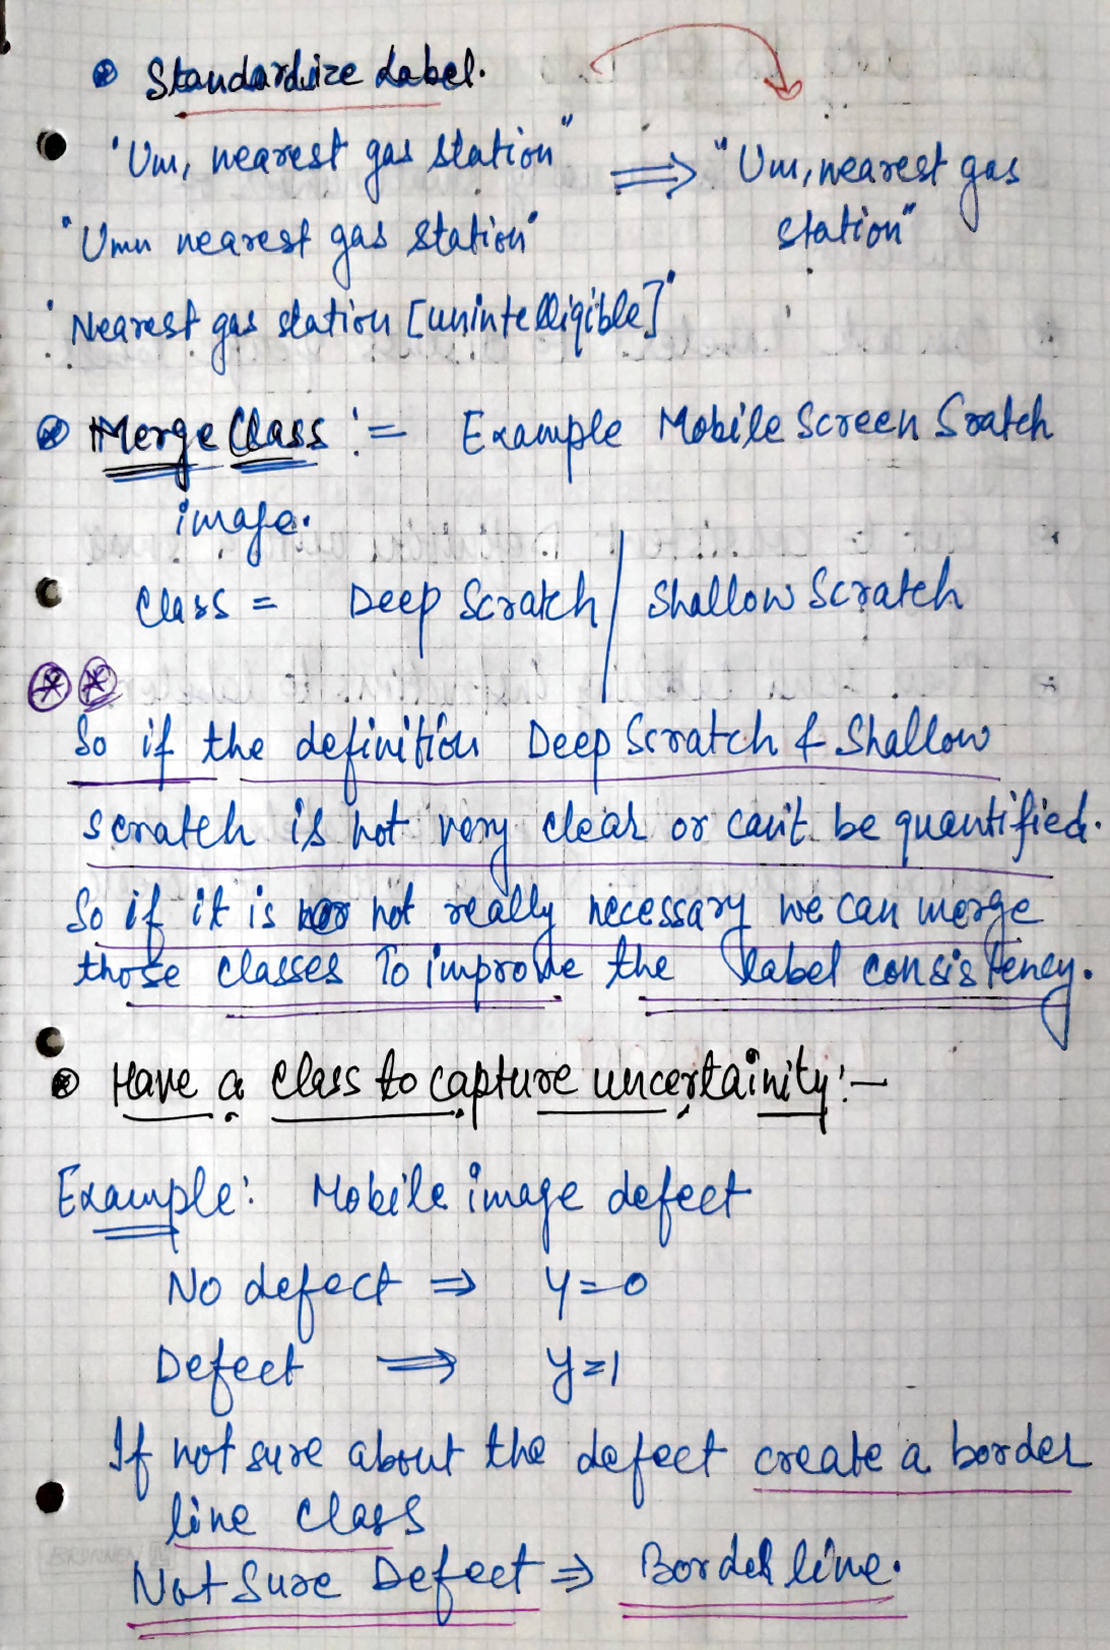 Standardize Label.
"Um, nearest gas station" ⇒ "Um, nearest gas
station"
"Umn nearest gas station"
"Nearest gas station [unintelligible]"
Merge Class := Example Mobile Screen Sratch
image.
Class = Deep Scratch / Shallow Scratch
So if the definition Deep Scratch & Shallow
scratch is not very clear or can't be quantified.
So if it is not really necessary we can merge
those classes To improve the label consistency.
Have a class to capture uncertainity :-
Example: Mobile image defect
No defect ⇒ y=0
Defect ⇒ y=1
If not sure about the defect create a border
line class
Not Sure Defect ⇒ Border line.